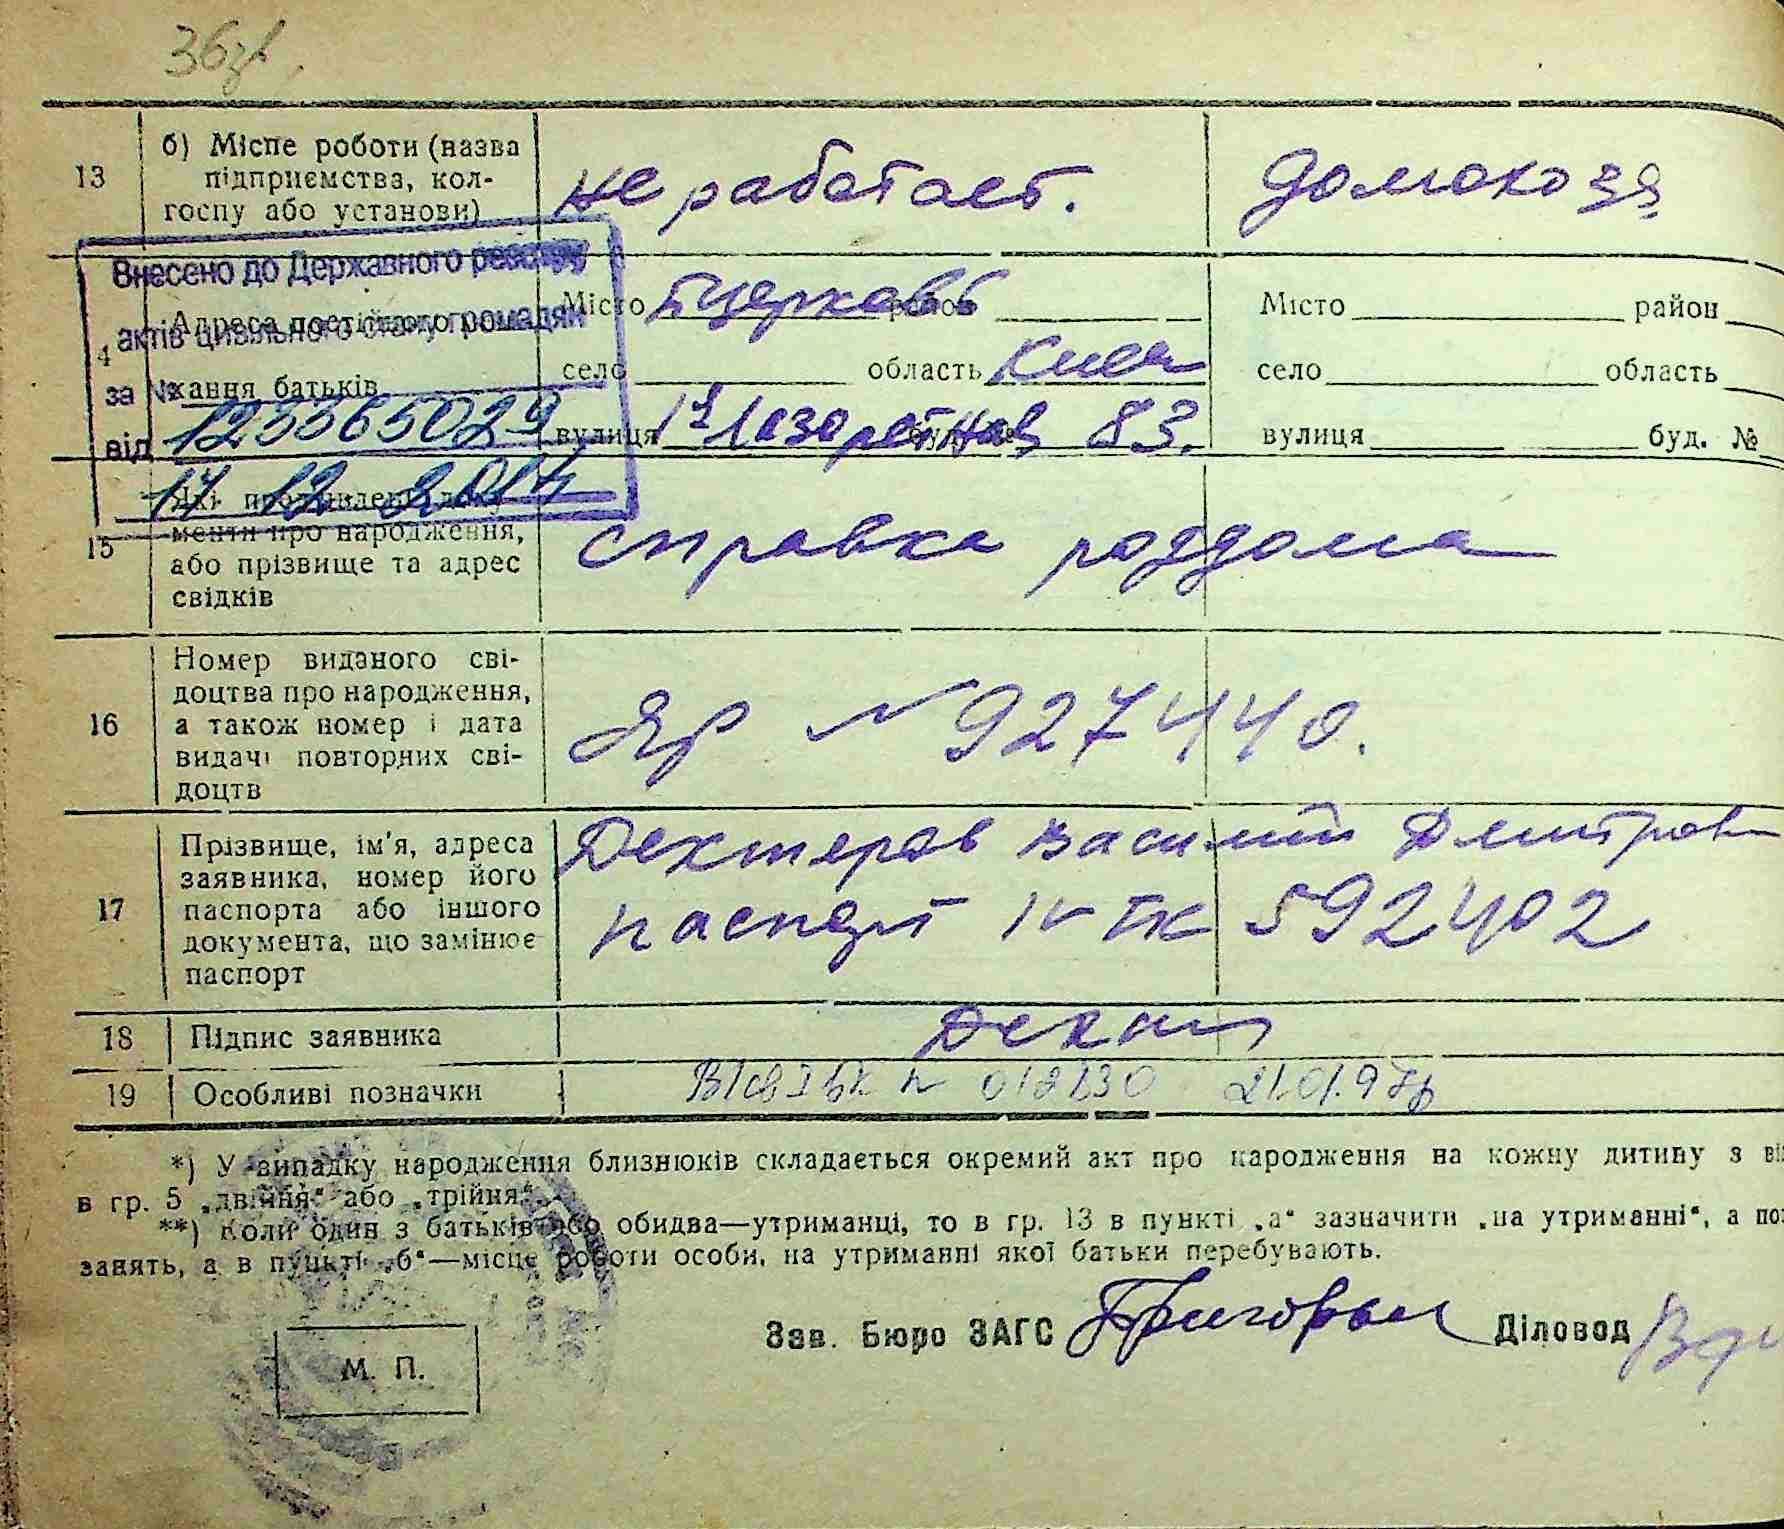 36зв.
13
б) Місце роботи (назва
підприємства, кол-
госпу або установи)
не работает.
домохозя
Внесено до Державного реєстру
актів цивільного стану громадян
за №
123365029
від
17 12 2014
4
Адреса постійного
кання батьків
Місто Бцерковь район
село область Киев
вулиця 1я Лазоретная буд. № 83.
Місто район
село область
вулиця буд. №
15
Які пред'явлені доку-
менти про народження,
або прізвище та адрес
свідків
справка роддома
16
Номер виданого сві-
доцтва про народження,
а також номер і дата
видачі повторних сві-
доцтв
ЯР № 927440.
17
Прізвище, ім'я, адреса
заявника, номер його
паспорта або іншого
документа, що замінює
паспорт
Дехтерев Василий Дмитров
паспорт IV ТК 592402
18
Підпис заявника
19
Особливі позначки
№ 012130 21.01.97р
*) У випадку народження близнюків складається окремий акт про народження на кожну дитину з ві
в гр. 5 „двійня“ або „трійня“.
**) Коли один з батьків або обидва—утриманці, то в гр. 13 в пункті „а“ зазначити „на утриманні“, а по
занять, а в пункті „б“—місце роботи особи, на утриманні якої батьки перебувають.
Зав. Бюро ЗАГС Діловод
М. П.